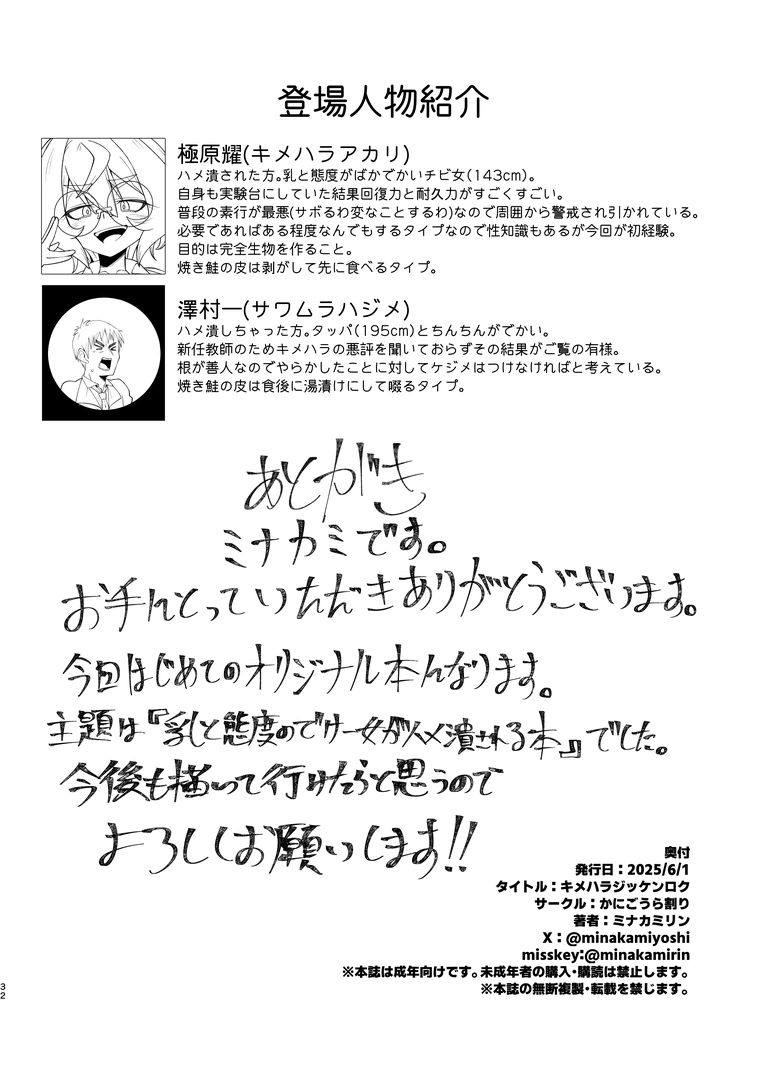 登場人物紹介
極原耀(キメハラアカリ)
ハメ潰された方。乳と態度がばかでかいチビ女(143cm)。
自身も実験台にしていた結果回復力と耐久力がすごくすごい。
普段の素行が最悪(サボるわ変なことするわ)なので周囲から警戒され引かれている。
必要であればある程度なんでもするタイプなので性知識もあるが今回が初経験。
目的は完全生物を作ること。
焼き鮭の皮は剥がして先に食べるタイプ。
澤村一(サワムラハジメ)
ハメ潰しちゃった方。タッパ(195cm)とちんちんがでかい。
新任教師のためキメハラの悪評を聞いておらずその結果がご覧の有様。
根が善人なのでやらかしたことに対してケジメはつけなければと考えている。
焼き鮭の皮は食後に湯漬けにして啜るタイプ。
あとがき
ミナカミです。
お手にとっていただきありがとうございます。
今回はじめてのオリジナル本になります。
主題は『乳と態度のでけー女がハメ潰される本』でした。
今後も描いて行けたらと思うので
よろしくお願いします!!
奥付
発行日：2025/6/1
タイトル：キメハラジッケンロク
サークル：かにごうら割り
著者：ミナカミリン
X：@minakamiyoshi
misskey:@minakamirin
※本誌は成年向けです。未成年者の購入・購読は禁止します。
※本誌の無断複製・転載を禁じます。
32